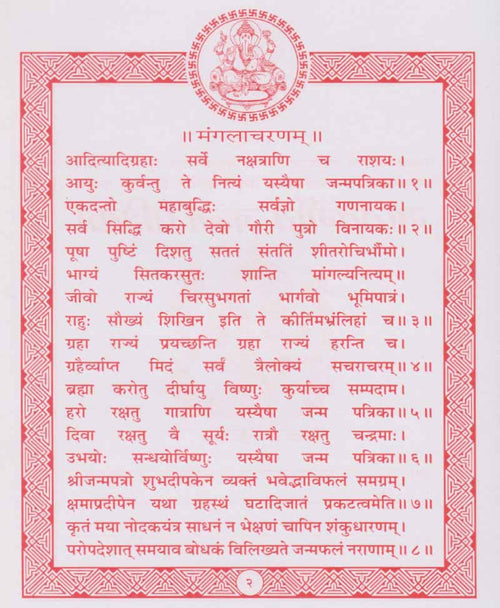 ॥ मंगलाचरणम् ॥
आदित्यादिग्रहाः सर्वे नक्षत्राणि च राशयः।
आयुः कुर्वन्तु ते नित्यं यस्यैषा जन्मपत्रिका॥१॥
एकदन्तो महाबुद्धिः सर्वज्ञो गणनायक।
सर्व सिद्धि करो देवो गौरी पुत्रो विनायकः॥२॥
पूषा पुष्टिं दिशतु सततं संततिं शीतरोचिर्भौमो।
भाग्यं सितकरसुतः शान्ति मांगल्यनित्यम्॥
जीवो राज्यं चिरसुभगतां भार्गवो भूमिपात्रं।
राहुः सौख्यं शिखिन इति ते कीर्तिमभ्रंलिहां च॥३॥
ग्रहा राज्यं प्रयच्छन्ति ग्रहा राज्यं हरन्ति च।
ग्रहैर्व्याप्त मिदं सर्वं त्रैलोक्यं सचराचरम्॥४॥
ब्रह्मा करोतु दीर्घायु विष्णुः कुर्याच्च सम्पदाम।
हरो रक्षतु गात्राणि यस्यैषा जन्म पत्रिका॥५॥
दिवा रक्षतु वै सूर्यः रात्रौ रक्षतु चन्द्रमाः।
उभयोः सन्धयोर्विष्णुः यस्यैषा जन्म पत्रिका॥६॥
श्रीजन्मपत्रो शुभदीपकेन व्यक्तं भवेद्भाविफलं समग्रम्।
क्षमाप्रदीपेन यथा ग्रहस्थं घटादिजातं प्रकटत्वमेति॥७॥
कृतं मया नोदकयंत्र साधनं न भेक्षणं चापिन शंकुधारणम्।
परोपदेशात् समयाव बोधकं विलिख्यते जन्मफलं नराणाम्॥८॥
२